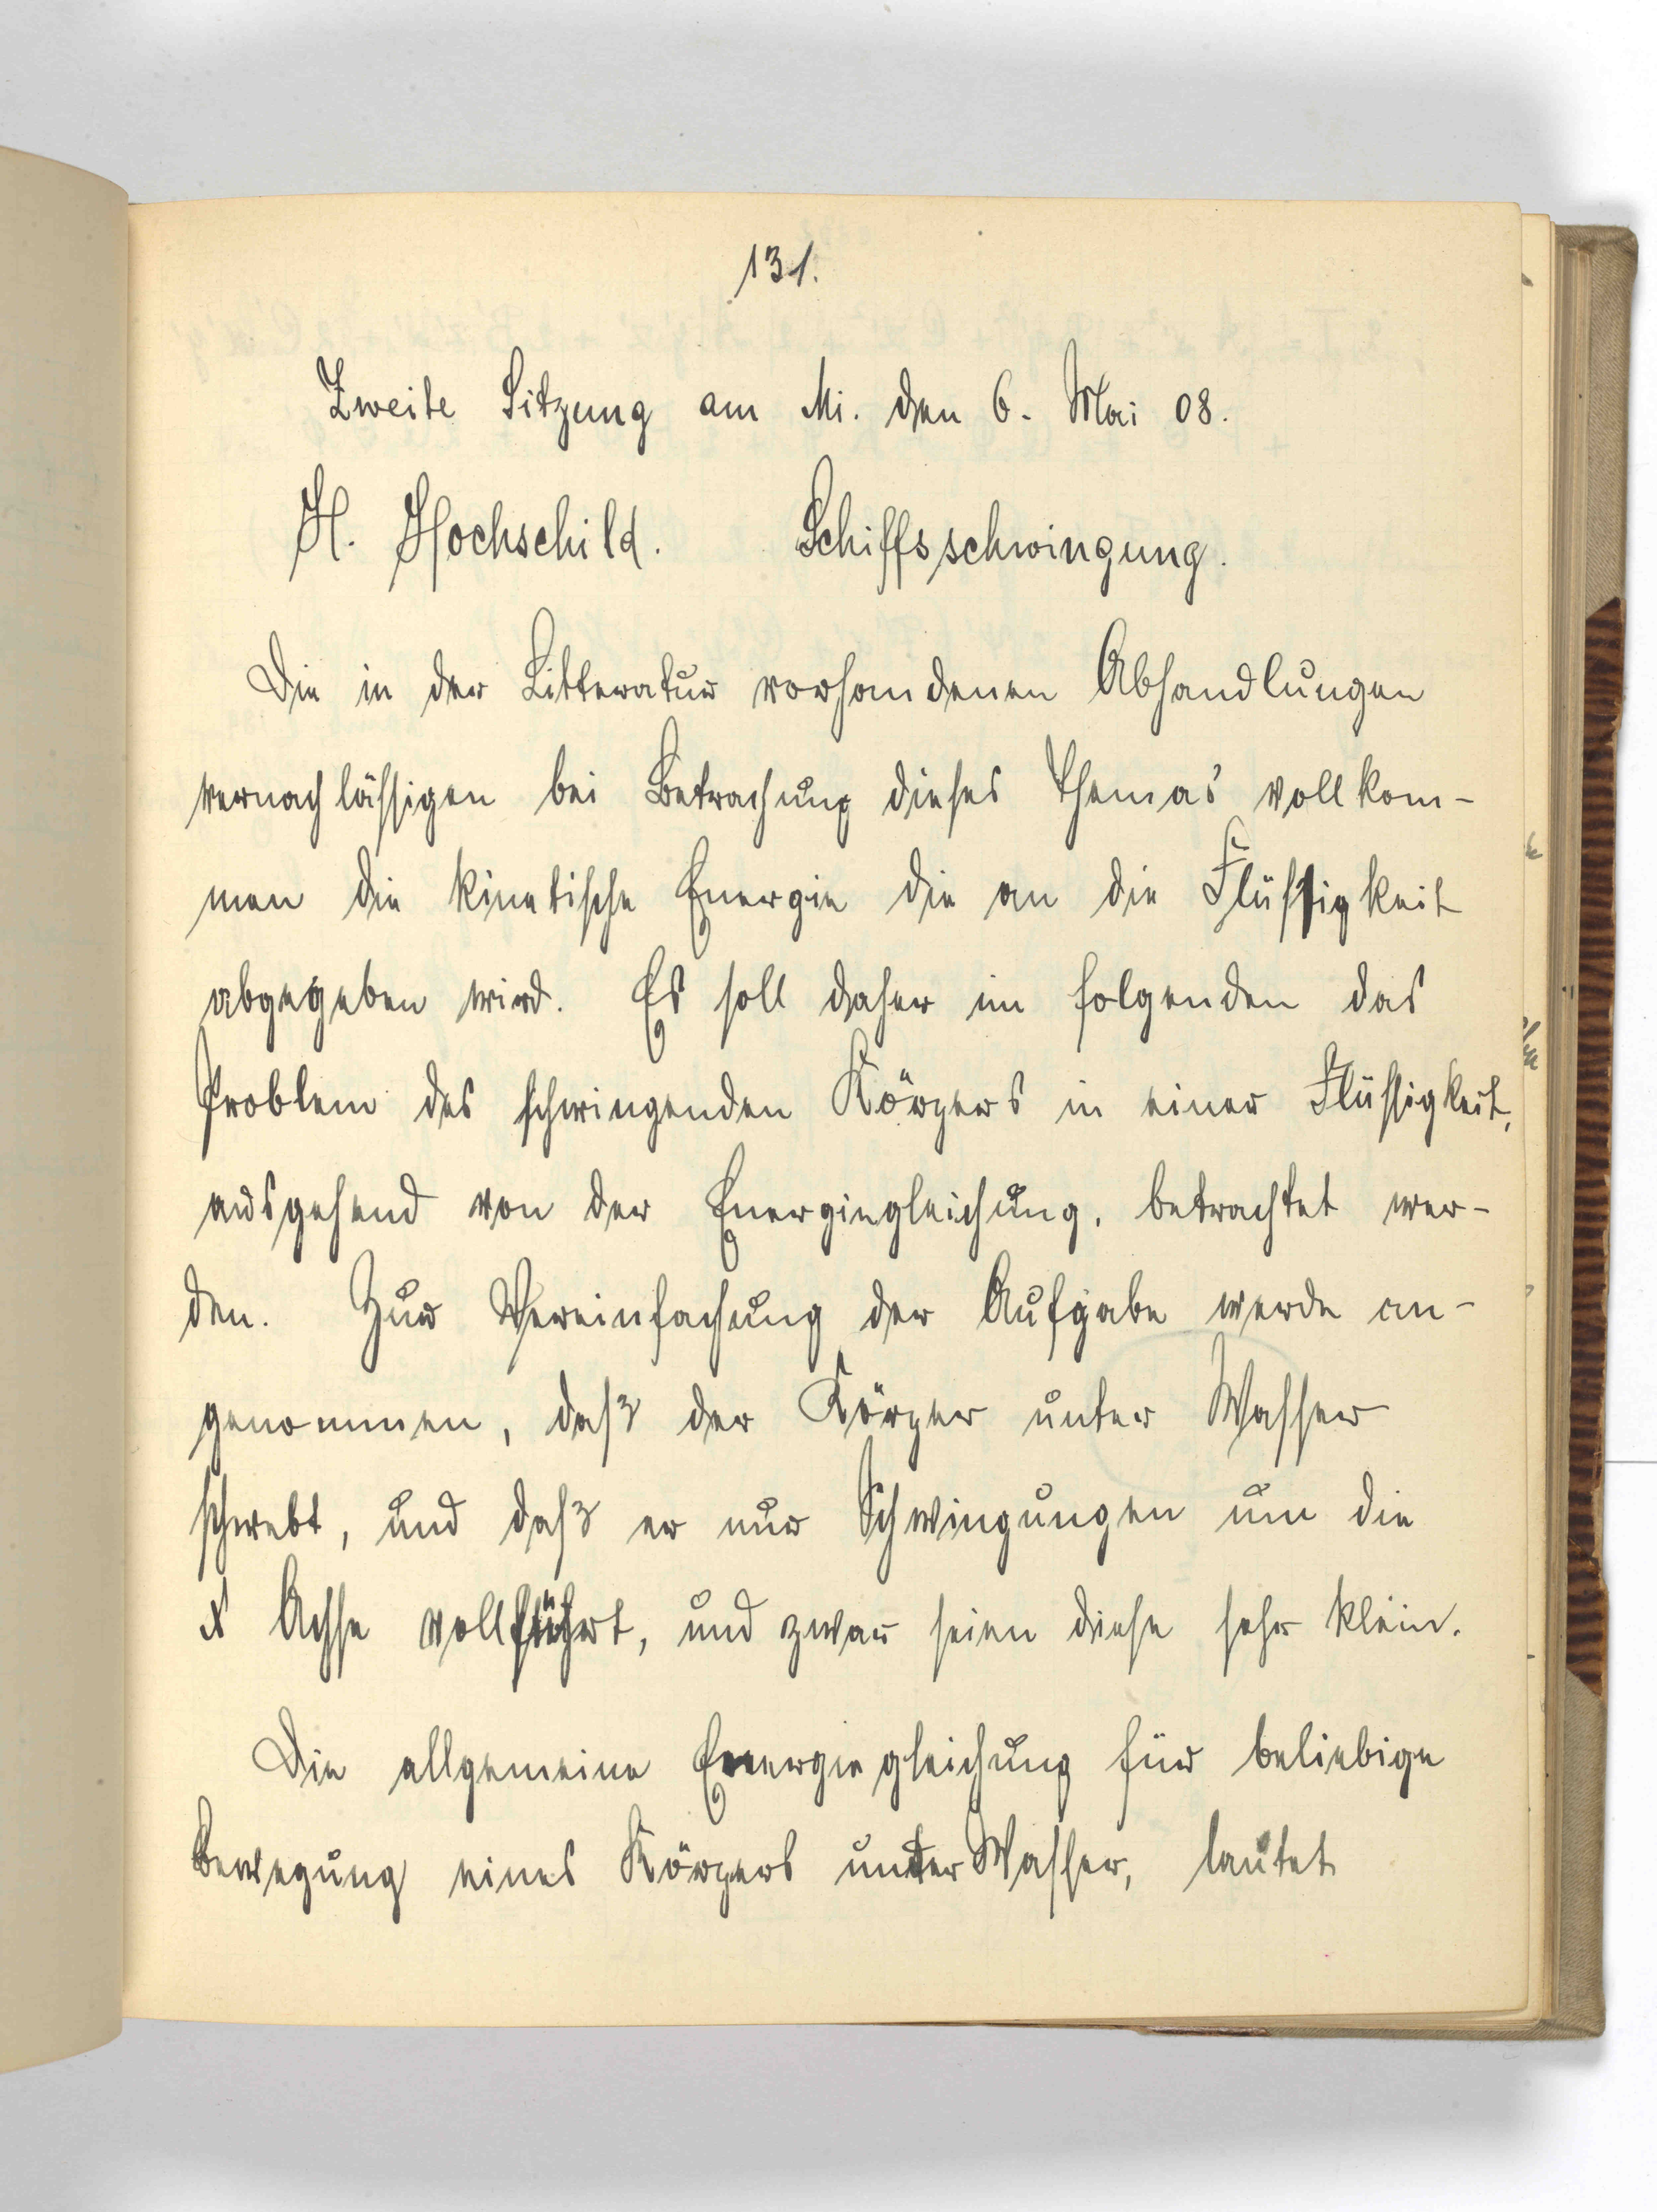 131.
Zweite Sitzung am Mi. den 6. Mai 08.
H. Hochschild. Schiffsschwingung.
Die in der Litteratur vorhandenen Abhandlungen
vernachlässigen bei Betrachung dieses Themas vollkom-
men die kinetische Energie die an die Flüssigkeit
abgegeben wird. Es soll daher im folgenden das
Problem des schwingenden Körpers in einer Flüssigkeit,
ausgehend von der Energiegleichung, betrachtet wer-
den. Zur Vereinfachung der Aufgabe werde an-
genommen, daß der Körper unter Wasser
schwebt, und daß er nur Schwingungen um die
X Achse vollführt, und zwar seien diese sehr klein.
Die allgemeine Energiegleichung für beliebige
Bewegung eines Körpers unter Wasser, lautet